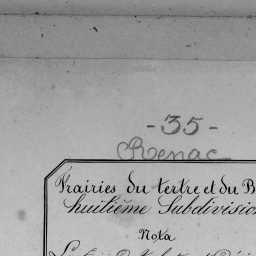 - 35 -
Renac
Prairies du tertre et du B
huitième Subdivision
Nota